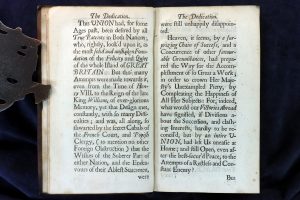 The Dedication.
The UNION had, for some
Ages past, been desired by all
True Patriots in Both Nations;
who, rightly, look'd upon it, as
the most solid and unshaken Foun-
dation of the Felicity and Quiet
of the whole Island of GREAT
BRITAIN. But tho' many
Attempts were made towards it,
even from the Time of Henry
VIII. to the Reign of the late
King William, of ever-glorious
Memory, yet that Design met,
constantly, with so many Diffi-
culties; and was, all along, so
thwarted by the secret Cabals of
the French Court, and Popish
Clergy, (to mention no other
Foreign Obstruction) that the
Wishes of the Soberer Part of
either Nation, and the Endea-
vours of their Ablest Statesmen,
were
The Dedication.
were still unhappily disappoint-
ed.
Heaven, it seems, by a
Chain of Successes, and a
Concurrence of other favour-
able Circumstances, had prepa-
red the Way for the Accom-
plishment of so Great a Work;
in order to crown Her Maje-
sty's Unexampled Piety, by
Completing the Happiness of
All Her Subjects: For, indeed,
what would our Victories Abroad
have signified, if Divisions a-
bout the Succession, and clash-
ing Interests, hardly to be recon-
ciled, but by an entire U-
NION, had left Us uneasie at
Home; and still Open, even af-
ter the Peace, to the
Attempts of a Restless and Con-
stant Enemy?
But